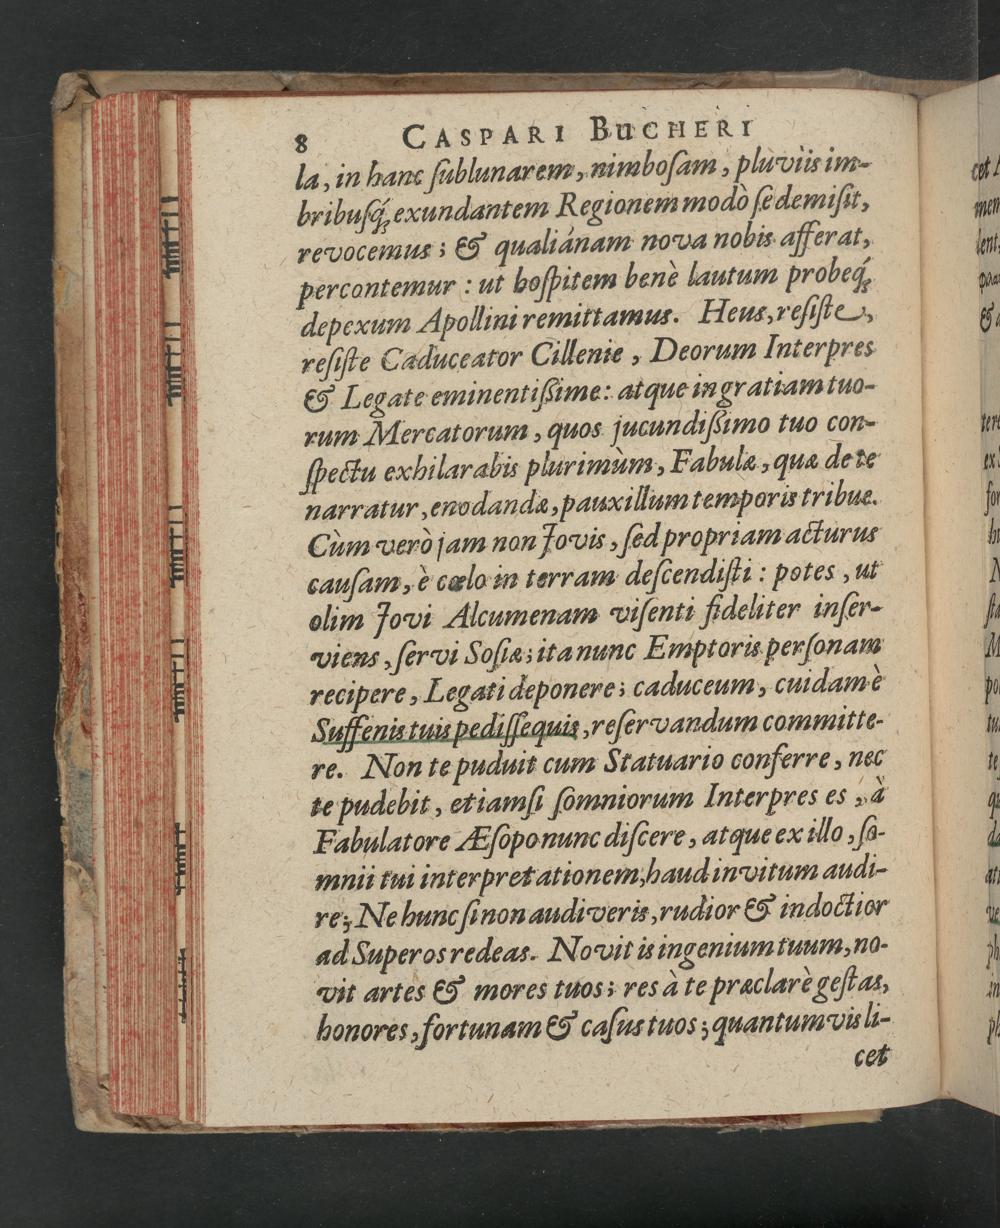 8 CASPARI BUCHERI
la, in hanc ſublunarem, nimboſam, pluviis im-
bribuſq́; exundantem Regionem modò ſe demiſit,
revocemus; & qualiánam nova nobis afferat,
percontemur: ut hoſpitem benè lautum probeq́;
depexum Apollini remittamus. Heus, reſiſte,
reſiſte Caduceator Cillenie, Deorum Interpres
& Legate eminentiſſime: atque in gratiam tuo-
rum Mercatorum, quos jucundiſſimo tuo con-
ſpectu exhilarabis plurimùm, Fabulæ, quæ de te
narratur, enodandæ, pauxillum temporis tribue.
Cùm verò jam non Jovis, ſed propriam acturus
cauſam, è cœlo in terram deſcendiſti: potes, ut
olim Jovi Alcumenam viſenti fideliter inſer-
viens, ſervi Soſiæ; ita nunc Emptoris perſonam
recipere, Legati deponere; caduceum, cuidam è
Suffenis tuis pediſſequis, reſervandum committe-
re. Non te puduit cum Statuario conferre, nec
te pudebit, etiamſi ſomniorum Interpres es, à
Fabulatore Æſopo nunc diſcere, atque ex illo, ſo-
mnii tui interpretationem, haud invitum audi-
re; Ne hunc ſi non audiveris, rudior & indoctior
ad Superos redeas. Novit is ingenium tuum, no-
vit artes & mores tuos; res à te præclarè geſtas,
honores, fortunam & caſus tuos; quantumvis li-
cet